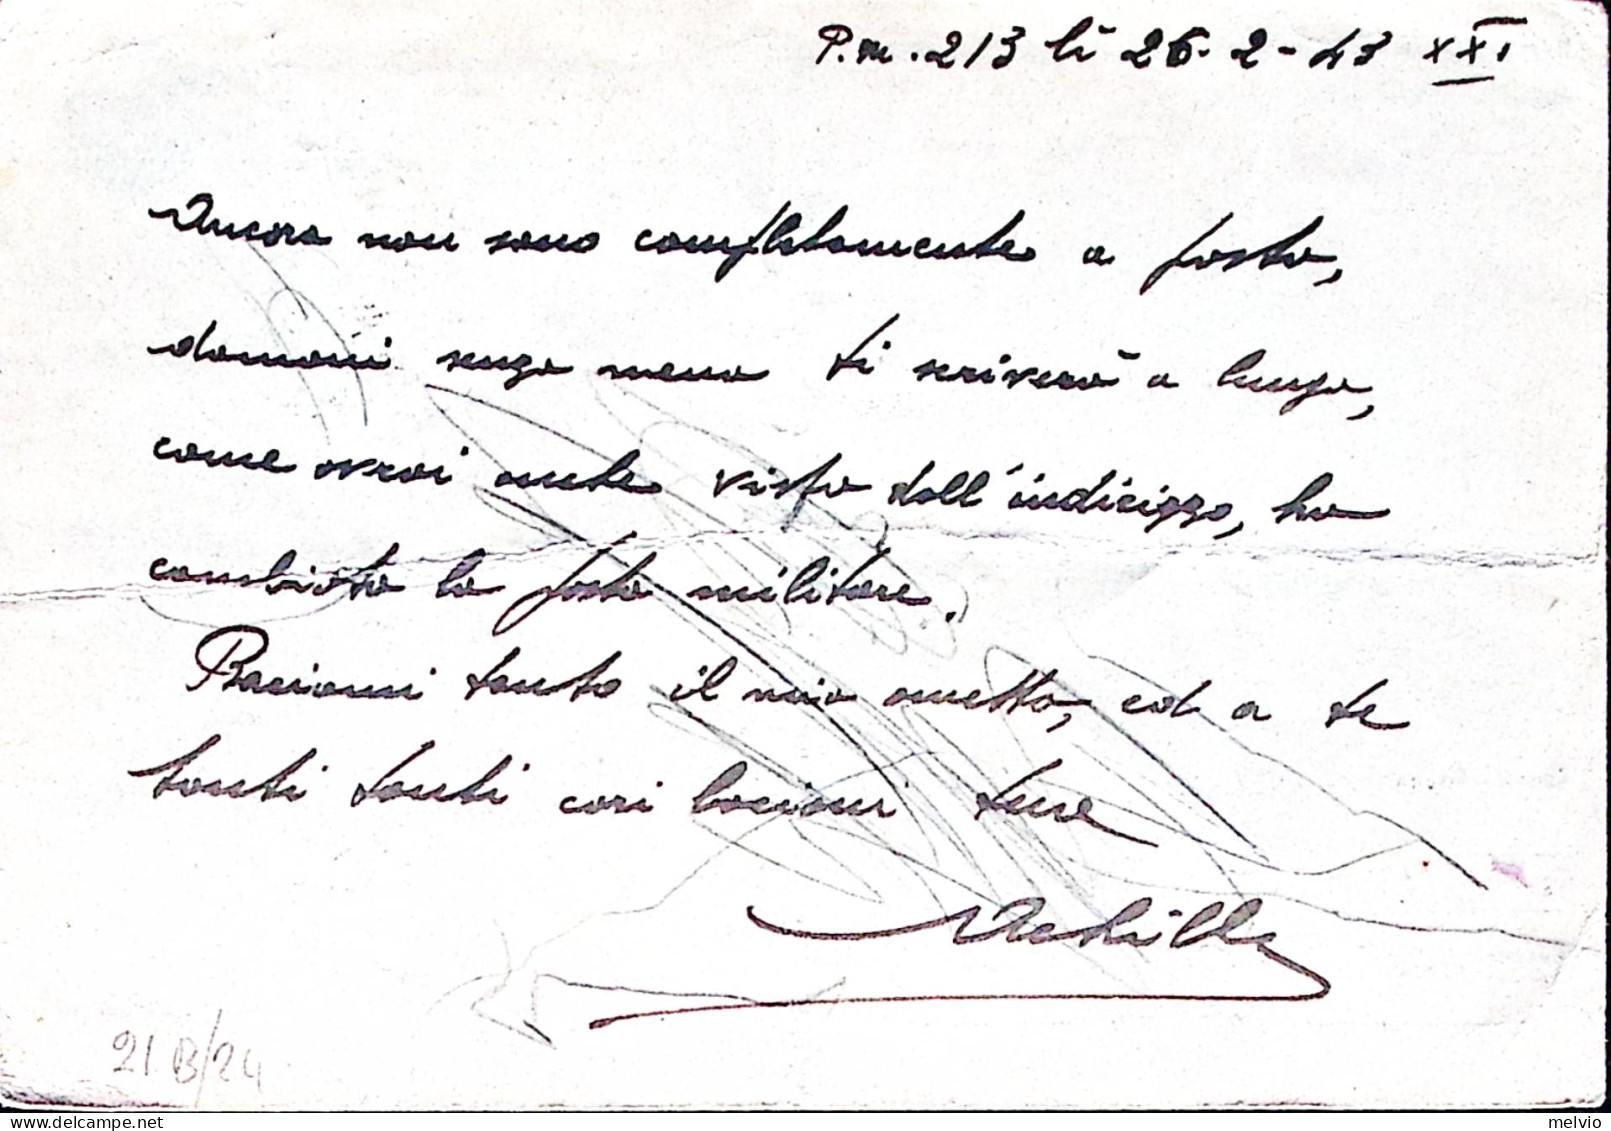 P.M. 213 lì 26-2-43 XXI
Ancora non sono completamente a posto,
domani senza meno ti scriverò a lungo,
come avrai anche visto dall'indirizzo, ho
cambiato la posta militare.
Baciami tanto il mio ometto, ed a te
tanti tanti cari bacioni tuo
Achille
21 B/24
melvio